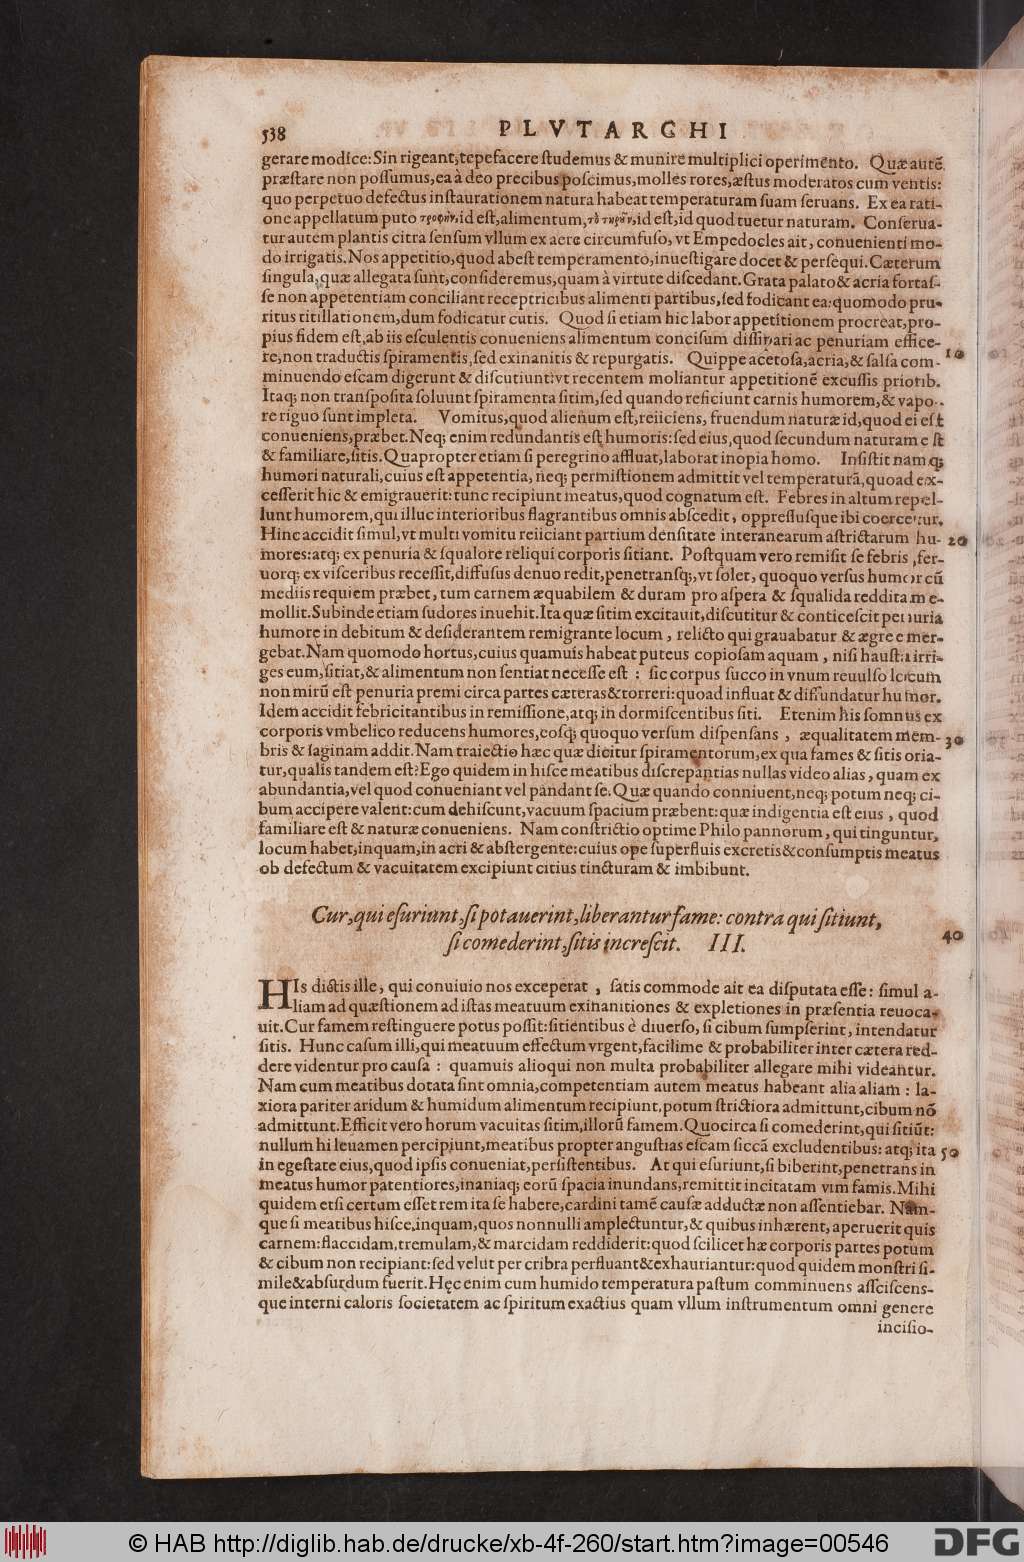 538 PLVTARCHI
gerare modice: Sin rigeant, tepefacere studemus & munire multiplici operimento. Quæ autẽ
præstare non possumus, ea à deo precibus poscimus, molles rores, æstus moderatos cum ventis:
quo perpetuo defectus instaurationem natura habeat temperaturam suam seruans. Ex ea rati-
one appellatum puto τροφὴν, id est, alimentum, τὸ τηρῆν, id est, id quod tuetur naturam. Conserua-
tur autem plantis citra sensum vllum ex aere circumfuso, vt Empedocles ait, conuenienti mo-
do irrigatis. Nos appetitio, quod abest temperamento, inuestigare docet & persequi. Cæterum
singula, quæ allegata sunt, consideremus, quam à virtute discedant. Grata palato & acria fortas-
se non appetentiam conciliant receptricibus alimenti partibus, sed fodicant ea: quomodo pru-
ritus titillationem, dum fodicatur cutis. Quod si etiam hic labor appetitionem procreat, pro-
pius fidem est, ab iis esculentis conueniens alimentum concisum dissipari ac penuriam effice-
re, non traductis spiramentis, sed exinanitis & repurgatis. Quippe acetosa, acria, & salsa com- 10
minuendo escam digerunt & discutiunt: vt recentem moliantur appetitionẽ excussis priorib.
Itaq; non transposita soluunt spiramenta sitim, sed quando reficiunt carnis humorem, & vapo-
re riguo sunt impleta. Vomitus, quod alienum est, reiiciens, fruendum naturæ id, quod ei est
conueniens, præbet. Neq; enim redundantis est humoris: sed eius, quod secundum naturam est
& familiare, sitis. Quapropter etiam si peregrino affluat, laborat inopia homo. Insistit namq;
humori naturali, cuius est appetentia, neq; permistionem admittit vel temperaturã, quoad ex-
cesserit hic & emigrauerit: tunc recipiunt meatus, quod cognatum est. Febres in altum repel-
lunt humorem, qui illuc interioribus flagrantibus omnis abscedit, oppressusque ibi coercetur.
Hinc accidit simul, vt multi vomitu reiiciant partium densitate interanearum astrictarum hu- 20
mores: atq; ex penuria & squalore reliqui corporis sitiant. Postquam vero remisit se febris, fer-
uorq; ex visceribus recessit, diffusus denuo redit, penetransq;, vt solet, quoquo versus humor cũ
mediis requiem præbet, tum carnem æquabilem & duram pro aspera & squalida reddita me-
mollit. Subinde etiam sudores inuehit. Ita quæ sitim excitauit, discutitur & conticescit penuria
humore in debitum & desiderantem remigrante locum, relicto qui grauabatur & ægre emer-
gebat. Nam quomodo hortus, cuius quamuis habeat puteus copiosam aquam, nisi hausta irri-
ges eum, sitiat, & alimentum non sentiat necesse est: sic corpus succo in vnum reuulso locum
non mirũ est penuria premi circa partes cæteras & torreri: quoad influat & diffundatur humor.
Idem accidit febricitantibus in remissione, atq; in dormiscentibus siti. Etenim his somnus ex
corporis vmbelico reducens humores, eosq; quoquo versum dispensans, æqualitatem mem- 30
bris & saginam addit. Nam traiectio hæc quæ dicitur spiramentorum, ex qua fames & sitis oria-
tur, qualis tandem est? Ego quidem in hisce meatibus discrepantias nullas video alias, quam ex
abundantia, vel quod conueniant vel pandant se. Quæ quando conniuent, neq; potum neq; ci-
bum accipere valent: cum dehiscunt, vacuum spacium præbent: quæ indigentia est eius, quod
familiare est & naturæ conueniens. Nam constrictio optime Philo pannorum, qui tinguntur,
locum habet, inquam, in acri & abstergente: cuius ope superfluis excretis & consumptis meatus
ob defectum & vacuitatem excipiunt citius tincturam & imbibunt.
Cur, qui esuriunt, si potauerint, liberantur fame: contra qui sitiunt,
si comederint, sitis increscit. III. 40
HIs dictis ille, qui conuiuio nos exceperat, satis commode ait ea disputata esse: simul a-
liam ad quæstionem ad istas meatuum exinanitiones & expletiones in præsentia reuoca-
uit. Cur famem restinguere potus possit: sitientibus è diuerso, si cibum sumpserint, intendatur
sitis. Hunc casum illi, qui meatuum effectum vrgent, facilime & probabiliter inter cætera red-
dere videntur pro causa: quamuis alioqui non multa probabiliter allegare mihi videantur.
Nam cum meatibus dotata sint omnia, competentiam autem meatus habeant alia aliam: la-
xiora pariter aridum & humidum alimentum recipiunt, potum strictiora admittunt, cibum nõ
admittunt. Efficit vero horum vacuitas sitim, illorũ famem. Quocirca si comederint, qui sitiũt:
nullum hi leuamen percipiunt, meatibus propter angustias escam siccã excludentibus: atq; ita 50
in egestate eius, quod ipsis conueniat, persistentibus. At qui esuriunt, si biberint, penetrans in
meatus humor patentiores, inaniaq; eorũ spacia inundans, remittit incitatam vim famis. Mihi
quidem etsi certum esset rem ita se habere, cardini tamẽ causæ adductæ non assentiebar. Nam-
que si meatibus hisce, inquam, quos nonnulli amplectuntur, & quibus inhærent, aperuerit quis
carnem: flaccidam, tremulam, & marcidam reddiderit: quod scilicet hæ corporis partes potum
& cibum non recipiant: sed velut per cribra perfluant & exhauriantur: quod quidem monstri si-
mile & absurdum fuerit. Hęc enim cum humido temperatura pastum comminuens asscisсens-
que interni caloris societatem ac spiritum exactius quam vllum instrumentum omni genere
incisio-
© HAB http://diglib.hab.de/drucke/xb-4f-260/start.htm?image=00546
DFG